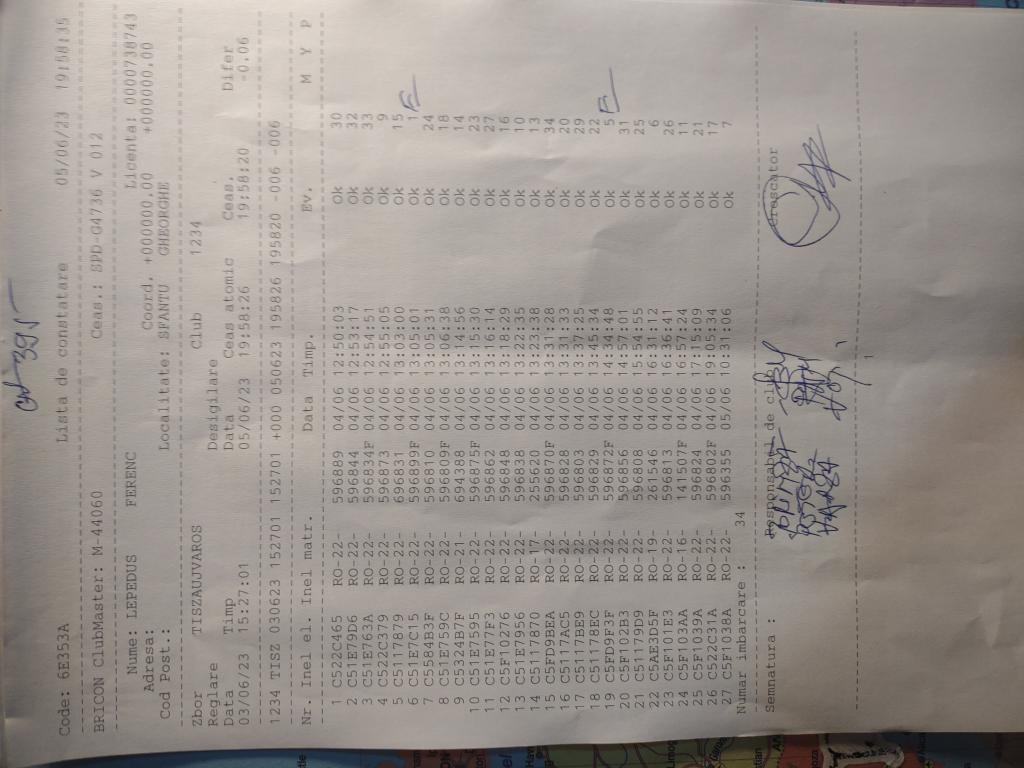 Code: 6E353A Lista de constatare 05/06/23 19:58:35
BRICON ClubMaster: M-44060 Ceas.: SPD-G4736 V 012
Nume: LEPEDUS FERENC Licenta: 0000738743
Adresa: Coord. +000000.00 +000000.00
Cod Post.: Localitate: SFANTU GHEORGHE
Zbor TISZAUJVAROS Club 1234
Reglare Desigilare
Data Timp Data Ceas atomic Ceas. Difer
03/06/23 15:27:01 05/06/23 19:58:26 19:58:20 -0.06
1234 TISZ 030623 152701 152701 +000 050623 195826 195820 -006 -006
Nr. Inel el. Inel matr. Data Timp. Ev. M Y P
1 C522C465 RO-22- 596889 04/06 12:50:03 Ok 30
2 C51E79D6 RO-22- 596844 04/06 12:53:17 Ok 32
3 C51E763A RO-22- 596834F 04/06 12:54:51 Ok 33
4 C522C379 RO-22- 596873 04/06 12:55:05 Ok 9
5 C5117879 RO-22- 696831 04/06 13:03:00 Ok 15
6 C51E7C15 RO-22- 596899F 04/06 13:05:01 Ok 1
7 C5584B3F RO-22- 596810 04/06 13:05:31 Ok 24
8 C51E759C RO-22- 596809F 04/06 13:06:38 Ok 18
9 C5324B7F RO-21- 694398 04/06 13:14:56 Ok 14
10 C51E7595 RO-22- 596875F 04/06 13:15:30 Ok 23
11 C51E77F3 RO-22- 596862 04/06 13:16:14 Ok 27
12 C5F10276 RO-22- 596848 04/06 13:18:29 Ok 16
13 C51E7956 RO-22- 596838 04/06 13:22:35 Ok 10
14 C5117870 RO-17- 255620 04/06 13:23:38 Ok 13
15 C5FD9BEA RO-22- 596870F 04/06 13:31:28 Ok 34
16 C5117AC5 RO-22- 596828 04/06 13:31:33 Ok 20
17 C5117BE9 RO-22- 596803 04/06 13:37:25 Ok 29
18 C51178EC RO-22- 596829 04/06 13:45:34 Ok 22
19 C5FD9F3F RO-22- 596872F 04/06 14:34:48 Ok 5
20 C5F102B3 RO-22- 596856 04/06 14:57:01 Ok 31
21 C51179D9 RO-22- 596808 04/06 15:54:55 Ok 25
22 C5AE3D5F RO-19- 261546 04/06 16:31:12 Ok 6
23 C5F101E3 RO-22- 596813 04/06 16:36:41 Ok 26
24 C5F103AA RO-16- 141507F 04/06 16:57:24 Ok 11
25 C5F1039A RO-22- 596824 04/06 17:15:09 Ok 21
26 C522C31A RO-22- 596802F 04/06 19:05:34 Ok 17
27 C5F1038A RO-22- 596355 05/06 10:31:06 Ok 7
Numar imbarcare : 34
Semnatura : Responsabel de club Crescator
1